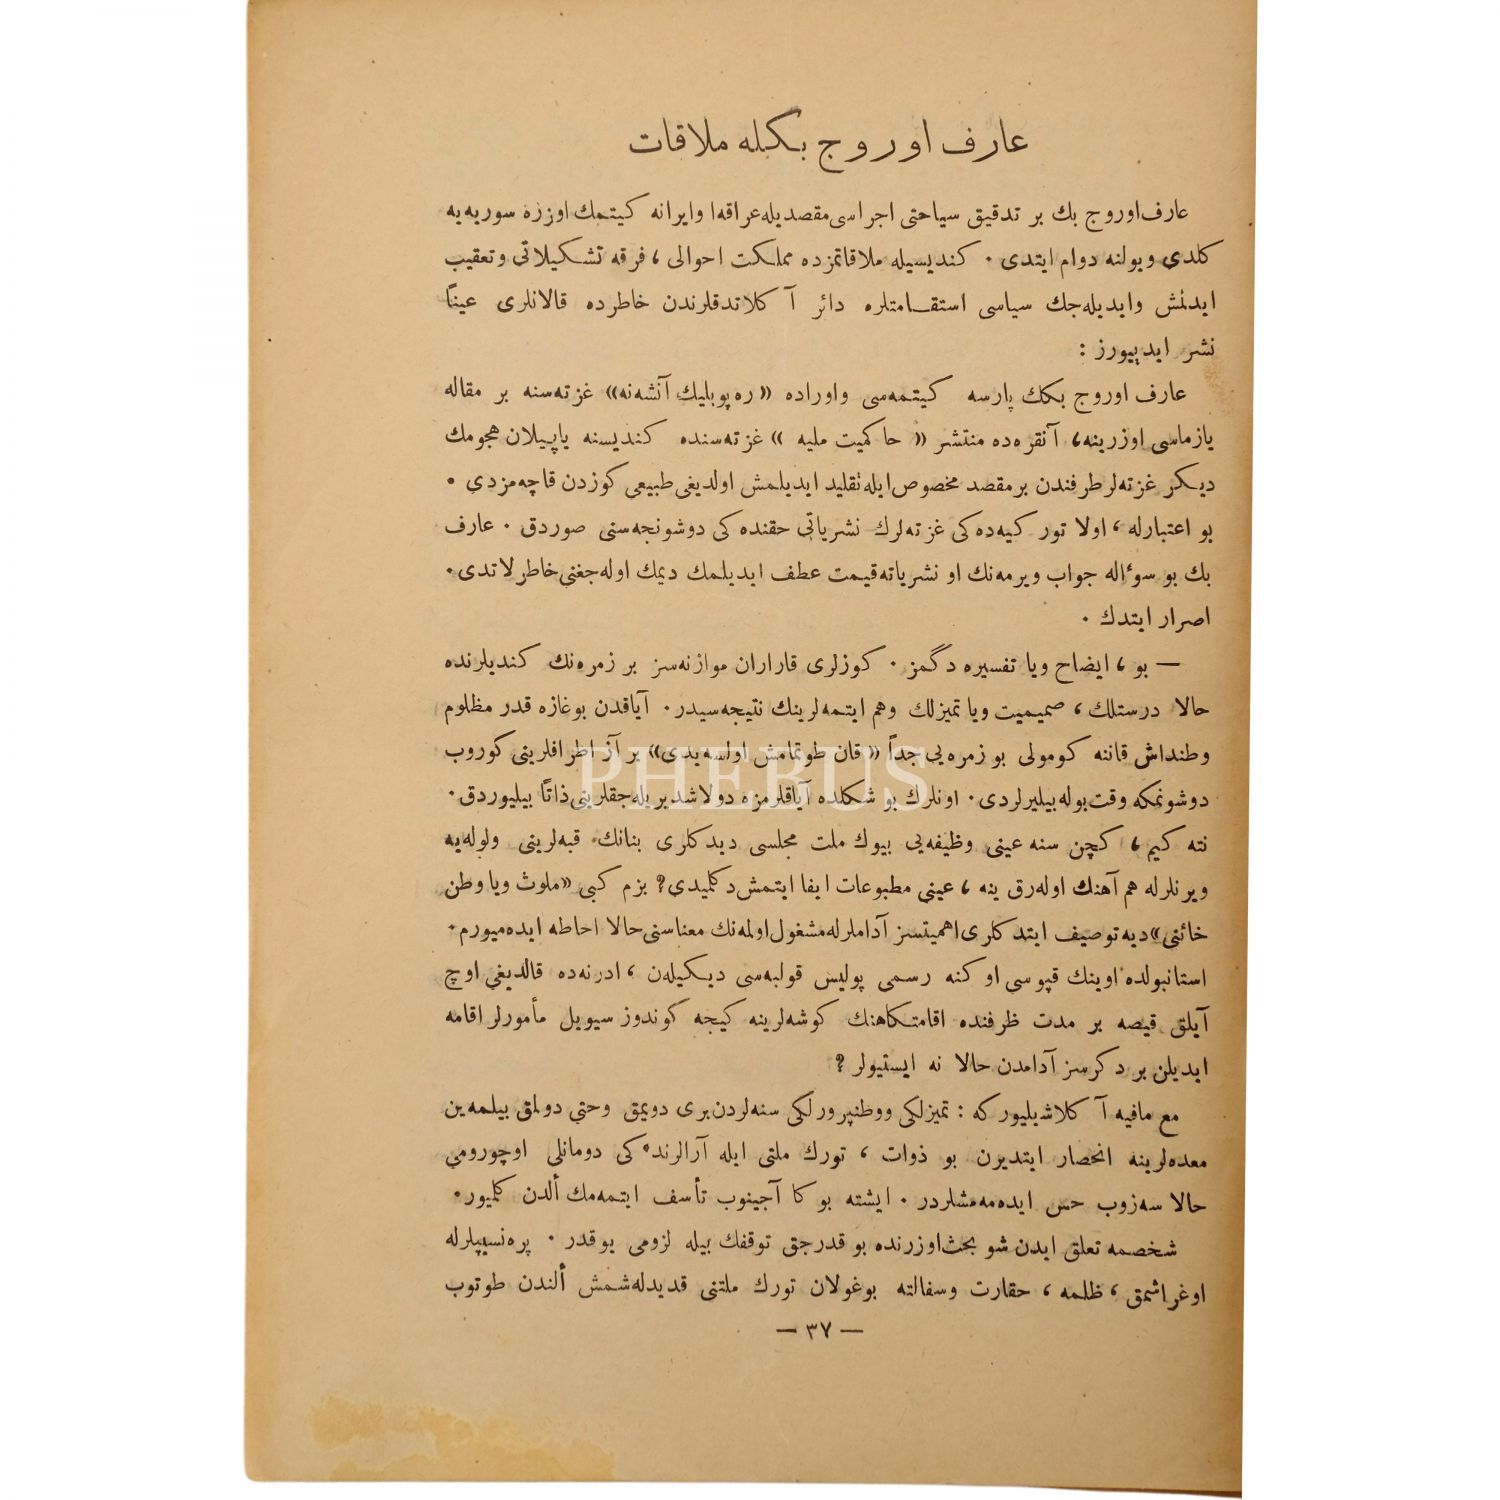 عارف اوروج بکله ملاقات
عارف اوروج بك بر تدقیق سیاحتی اجراسی مقصدیله عراقه وایرانه کیتمك اوزره سوریه یه
کلدی ویولنه دوام ایتدی . کندیسیله ملاقاتمزده مملکت احوالی ، فرقه تشکیلاتی وتعقیب
ایدلمش وایدیله جك سیاسی استقامتلره دائر آکلاتدقلرندن خاطرده قالانلری عیناً
نشر ایدییورز :
عارف اوروج بکك پارسه کیتمه سی واوراده «ره پوبلیك آنشه نه» غزته سنه بر مقاله
یازماسی اوزرینه، آنقره ده منتشر « حاکمیت ملیه » غزته سنده کندیسنه یاپیلان هجومك
دیکر غزته لر طرفندن بر مقصد مخصوص ایله تقلید ایدیلمش اولدیغی طبیعی کوزدن قاچه مزدی .
بو اعتبارله ، اولا تورکیه ده کی غزته لرك نشریاتی حقنده کی دوشونجه سنی صوردق . عارف
بك بو سوءاله جواب ویرمه نك او نشریاته قیمت عطف ایدیلمك دیمك اوله جغنی خاطرلاتدی .
اصرار ایتدك .
— بو ، ایضاح ویا تفسیره دگمز . کوزلری قاراران موازنه سز بر زمره نك کندیلرنده
حالا درستلك ، صمیمیت ویا تمیزلك وهم ایتمه لرینك نتیجه سیدر . آیاقدن بوغازه قدر مظلوم
وطنداش قاننه کومولی بو زمره یی جداً «قان طوتمامش اولسه یدی» بر آز اطرافلرینی کوروب
دوشونمکه وقت بوله بیلیرلردی . اونلرك بو شکلده آیاقلرمزه دولاشدیریله جقلرینی ذاتاً بیلیوردق .
نته کیم ، کچن سنه عینی وظیفه یی بیوك ملت مجلسی دیدکلری بنانك قبه لرینی ولوله یه
ویرنلرله هم آهنك اوله رق ینه ، عینی مطبوعات ایفا ایتمش دکلیدی؟ بزم کبی «ملوث ویا وطن
خائنی» دیه توصیف ایتدکلری اهمیتسز آداملرله مشغول اولمه نك معناسنی حالا احاطه ایده میورم .
استانبولده اوینك قپوسی اوکنه رسمی پولیس قولبه سی دیکیله ن ، ادرنه ده قالدیغی اوچ
آیلق قیصه بر مدت ظرفنده اقامتکاهنك کوشه لرینه کیجه کوندوز سیویل مأمورلر اقامه
ایدیلن بر دکرسز آدامدن حالا نه ایستیولر ؟
مع مافیه آکلاشیلیور که : تمیزلکی ووطنپرورلکی سنه لردن بری دویمق وحتی دولمق بیلمه ین
معده لرینه انحصار ایتدیرن بو ذوات ، تورك ملتی ایله آرالرنده کی دومانلی اوچورومی
حالا سه زوب حس ایده مه مشلردر . ایشته بوکا آجینوب تأسف ایتمه مك ألدن کلیور .
شخصمه تعلق ایدن شو بحث اوزرنده بو قدرجق توقفك بیله لزومی یوقدر . پره نسیپلرله
اوغراشمق ، ظلمه ، حقارت وسفالته بوغولان تورك ملتنی قدیدله شمش ألندن طوتوب
— ٣٧ —
PHEBUS